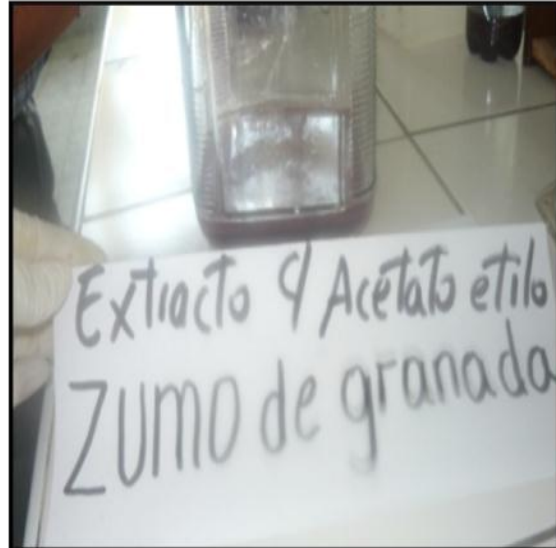 Extracto c/ Acetato etilo
Zumo de granada